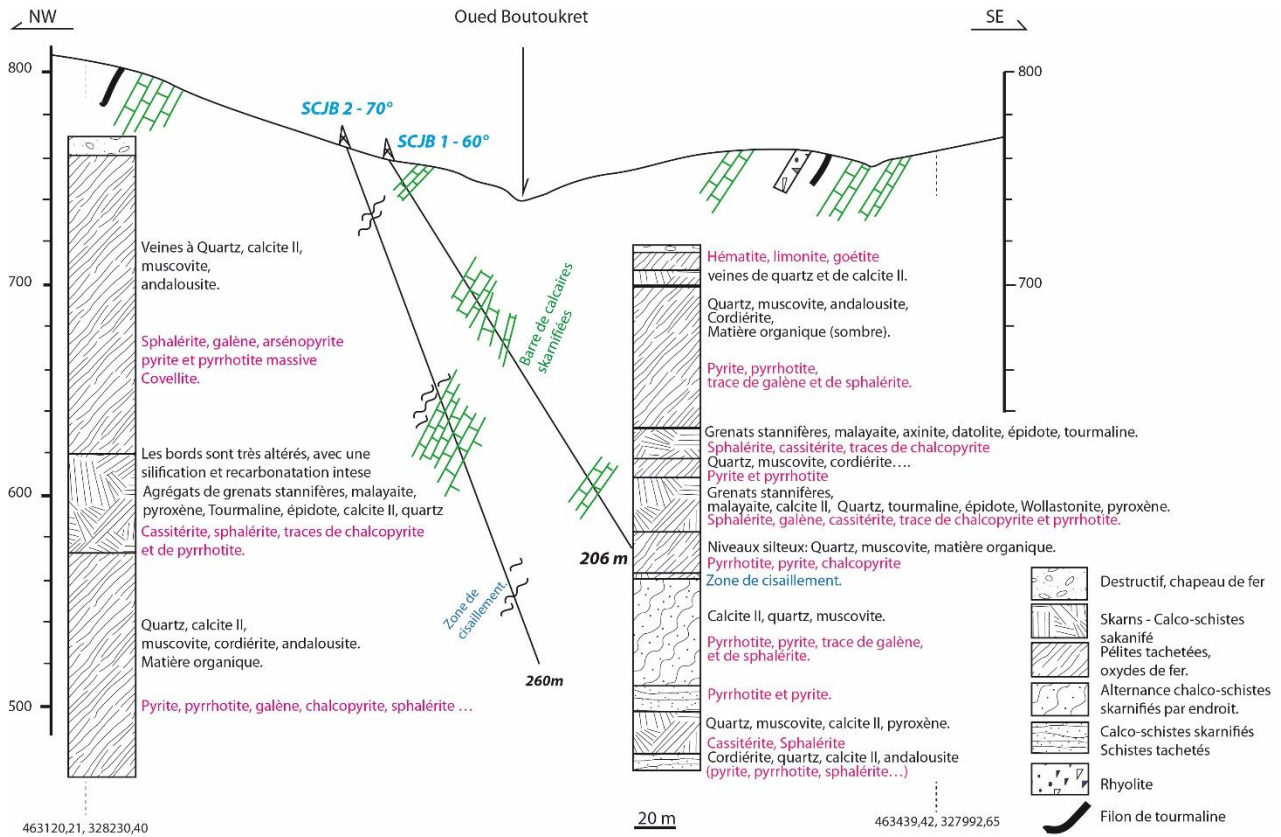 NW
Oued Boutoukret
SE
800
700
600
500
800
700
SCJB 2 - 70°
SCJB 1 - 60°
Veines à Quartz, calcite II,
muscovite,
andalousite.
Sphalérite, galène, arsénopyrite
pyrite et pyrrhotite massive
Covellite.
Les bords sont très altérés, avec une
silification et recarbonatation intese
Agrégats de grenats stannifères, malayaite,
pyroxène, Tourmaline, épidote, calcite II, quartz
Cassitérite, sphalérite, traces de chalcopyrite
et de pyrrhotite.
Quartz, calcite II,
muscovite, cordiérite, andalousite.
Matière organique.
Pyrite, pyrrhotite, galène, chalcopyrite, sphalérite ...
Barre de calcaires
skarnifiées
Zone de
cisaillement.
206 m
260m
Hématite, limonite, goétite
veines de quartz et de calcite II.
Quartz, muscovite, andalousite,
Cordiérite,
Matière organique (sombre).
Pyrite, pyrrhotite,
trace de galène et de sphalérite.
Grenats stannifères, malayaite, axinite, datolite, épidote, tourmaline.
Sphalérite, cassitérite, traces de chalcopyrite
Quartz, muscovite, cordiérite....
Pyrite et pyrrhotite
Grenats stannifères,
malayaite, calcite II, Quartz, tourmaline, épidote, Wollastonite, pyroxène.
Sphalérite, galène, cassitérite, trace de chalcopyrite et pyrrhotite.
Niveaux silteux: Quartz, muscovite, matière organique.
Pyrrhotite, pyrite, chalcopyrite
Zone de cisaillement.
Calcite II, quartz, muscovite.
Pyrrhotite, pyrite, trace de galène,
et de sphalérite.
Pyrrhotite et pyrite.
Quartz, muscovite, calcite II, pyroxène.
Cassitérite, Sphalérite
Cordiérite, quartz, calcite II, andalousite
(pyrite, pyrrhotite, sphalérite...)
Destructif, chapeau de fer
Skarns - Calco-schistes
sakanifé
Pélites tachetées,
oxydes de fer.
Alternance chalco-schistes
skarnifiés par endroit.
Calco-schistes skarnifiés
Schistes tachetés
Rhyolite
Filon de tourmaline
463120,21, 328230,40
20 m
463439,42, 327992,65